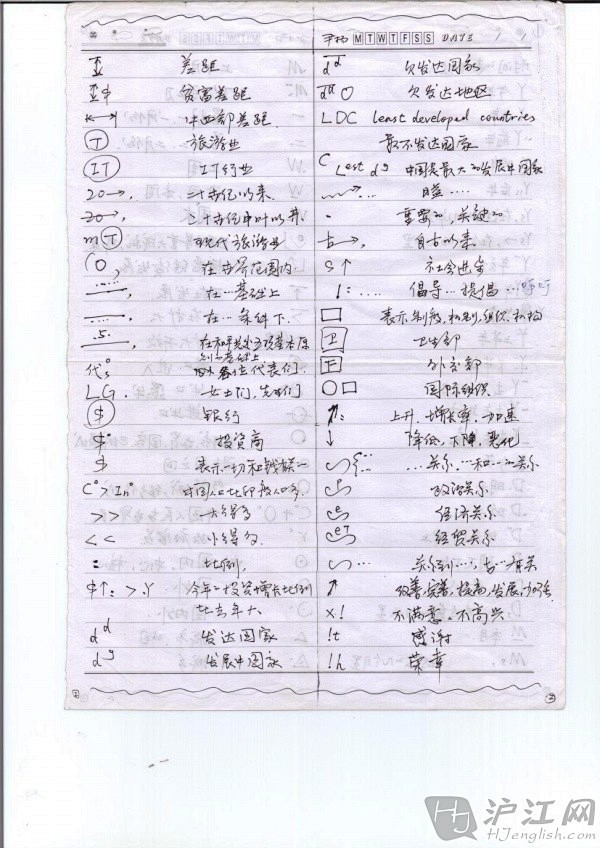 MTWTFSS DATE
差距
贫富差距
中西部差距
T 旅游业
IT IT行业
20→, 二十世纪以来
20→, 二十世纪中叶以来
mT 现代旅游业
在世界范围内
在…基础上
在…条件下
.5. 在和平共处五项基本原则的基础上
代 各位代表们
LG. 女士们,先生们
$ 银行
$ 投资商
$ 表示一切和钱有关
C°>In° 中国人口比印度人口多
>> 大得多
<< 小得多
: 比例,
$↑:>.Y 今年投资增长比例
比去年大
d^d 发达国家
d^g 发展中国家
欠发达国家
欠发达地区
LDC least developed countries
最不发达国家
C Lest dg 中国是最大的发展中国家
重要的,关键的
古→, 自古以来
S↑ 社会进步
!:.... 倡导…提倡…呼吁
□ 表示制度,机制,组织,机构
卫 卫生部
外交部
○□ 国际组织
上升,增长率,加速
↓ 降低,下降,恶化
…关系,…和…的关系
政治关系
e 经济关系
经贸关系
改善,完善,提高,发展,加强
x! 不满意,不高兴
!t 感谢
!h 荣幸
HJ 沪江网
HJenglish.com